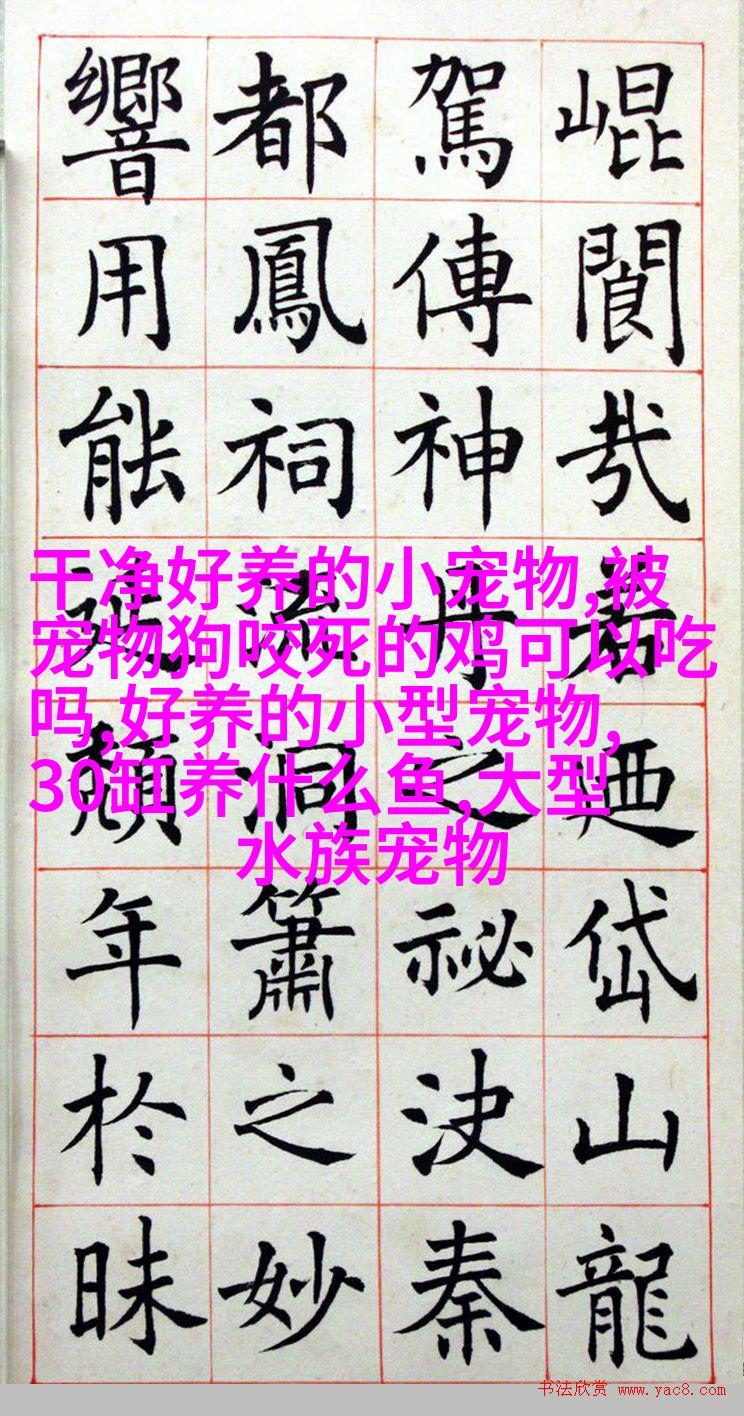 崐閬哉若廼岱山龍
駕傳神丹之祕決秦
都鳳祠流洞簫之妙
響用能頹年於昧
干净好养的小宠物,被
宠物狗咬死的鸡可以吃
吗,好养的小型宠物,
30缸养什么鱼,大型
水族宠物
书法欣赏 www.yac8.com